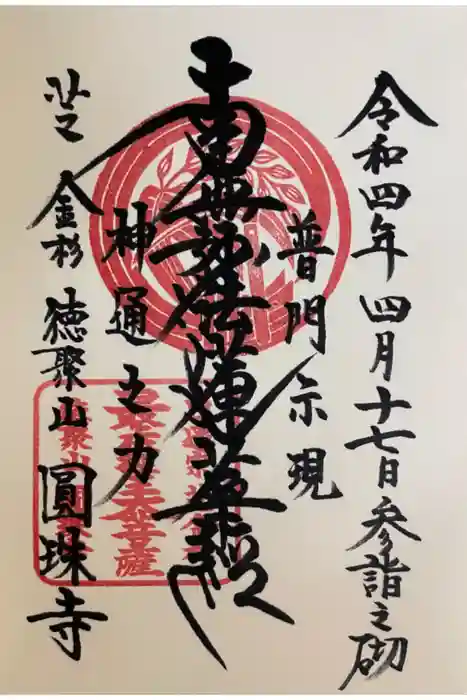 令和四年四月十七日参詣之砌
普門示現
南無妙法蓮華経
神通之力
芝金杉 徳聚山 圓珠寺